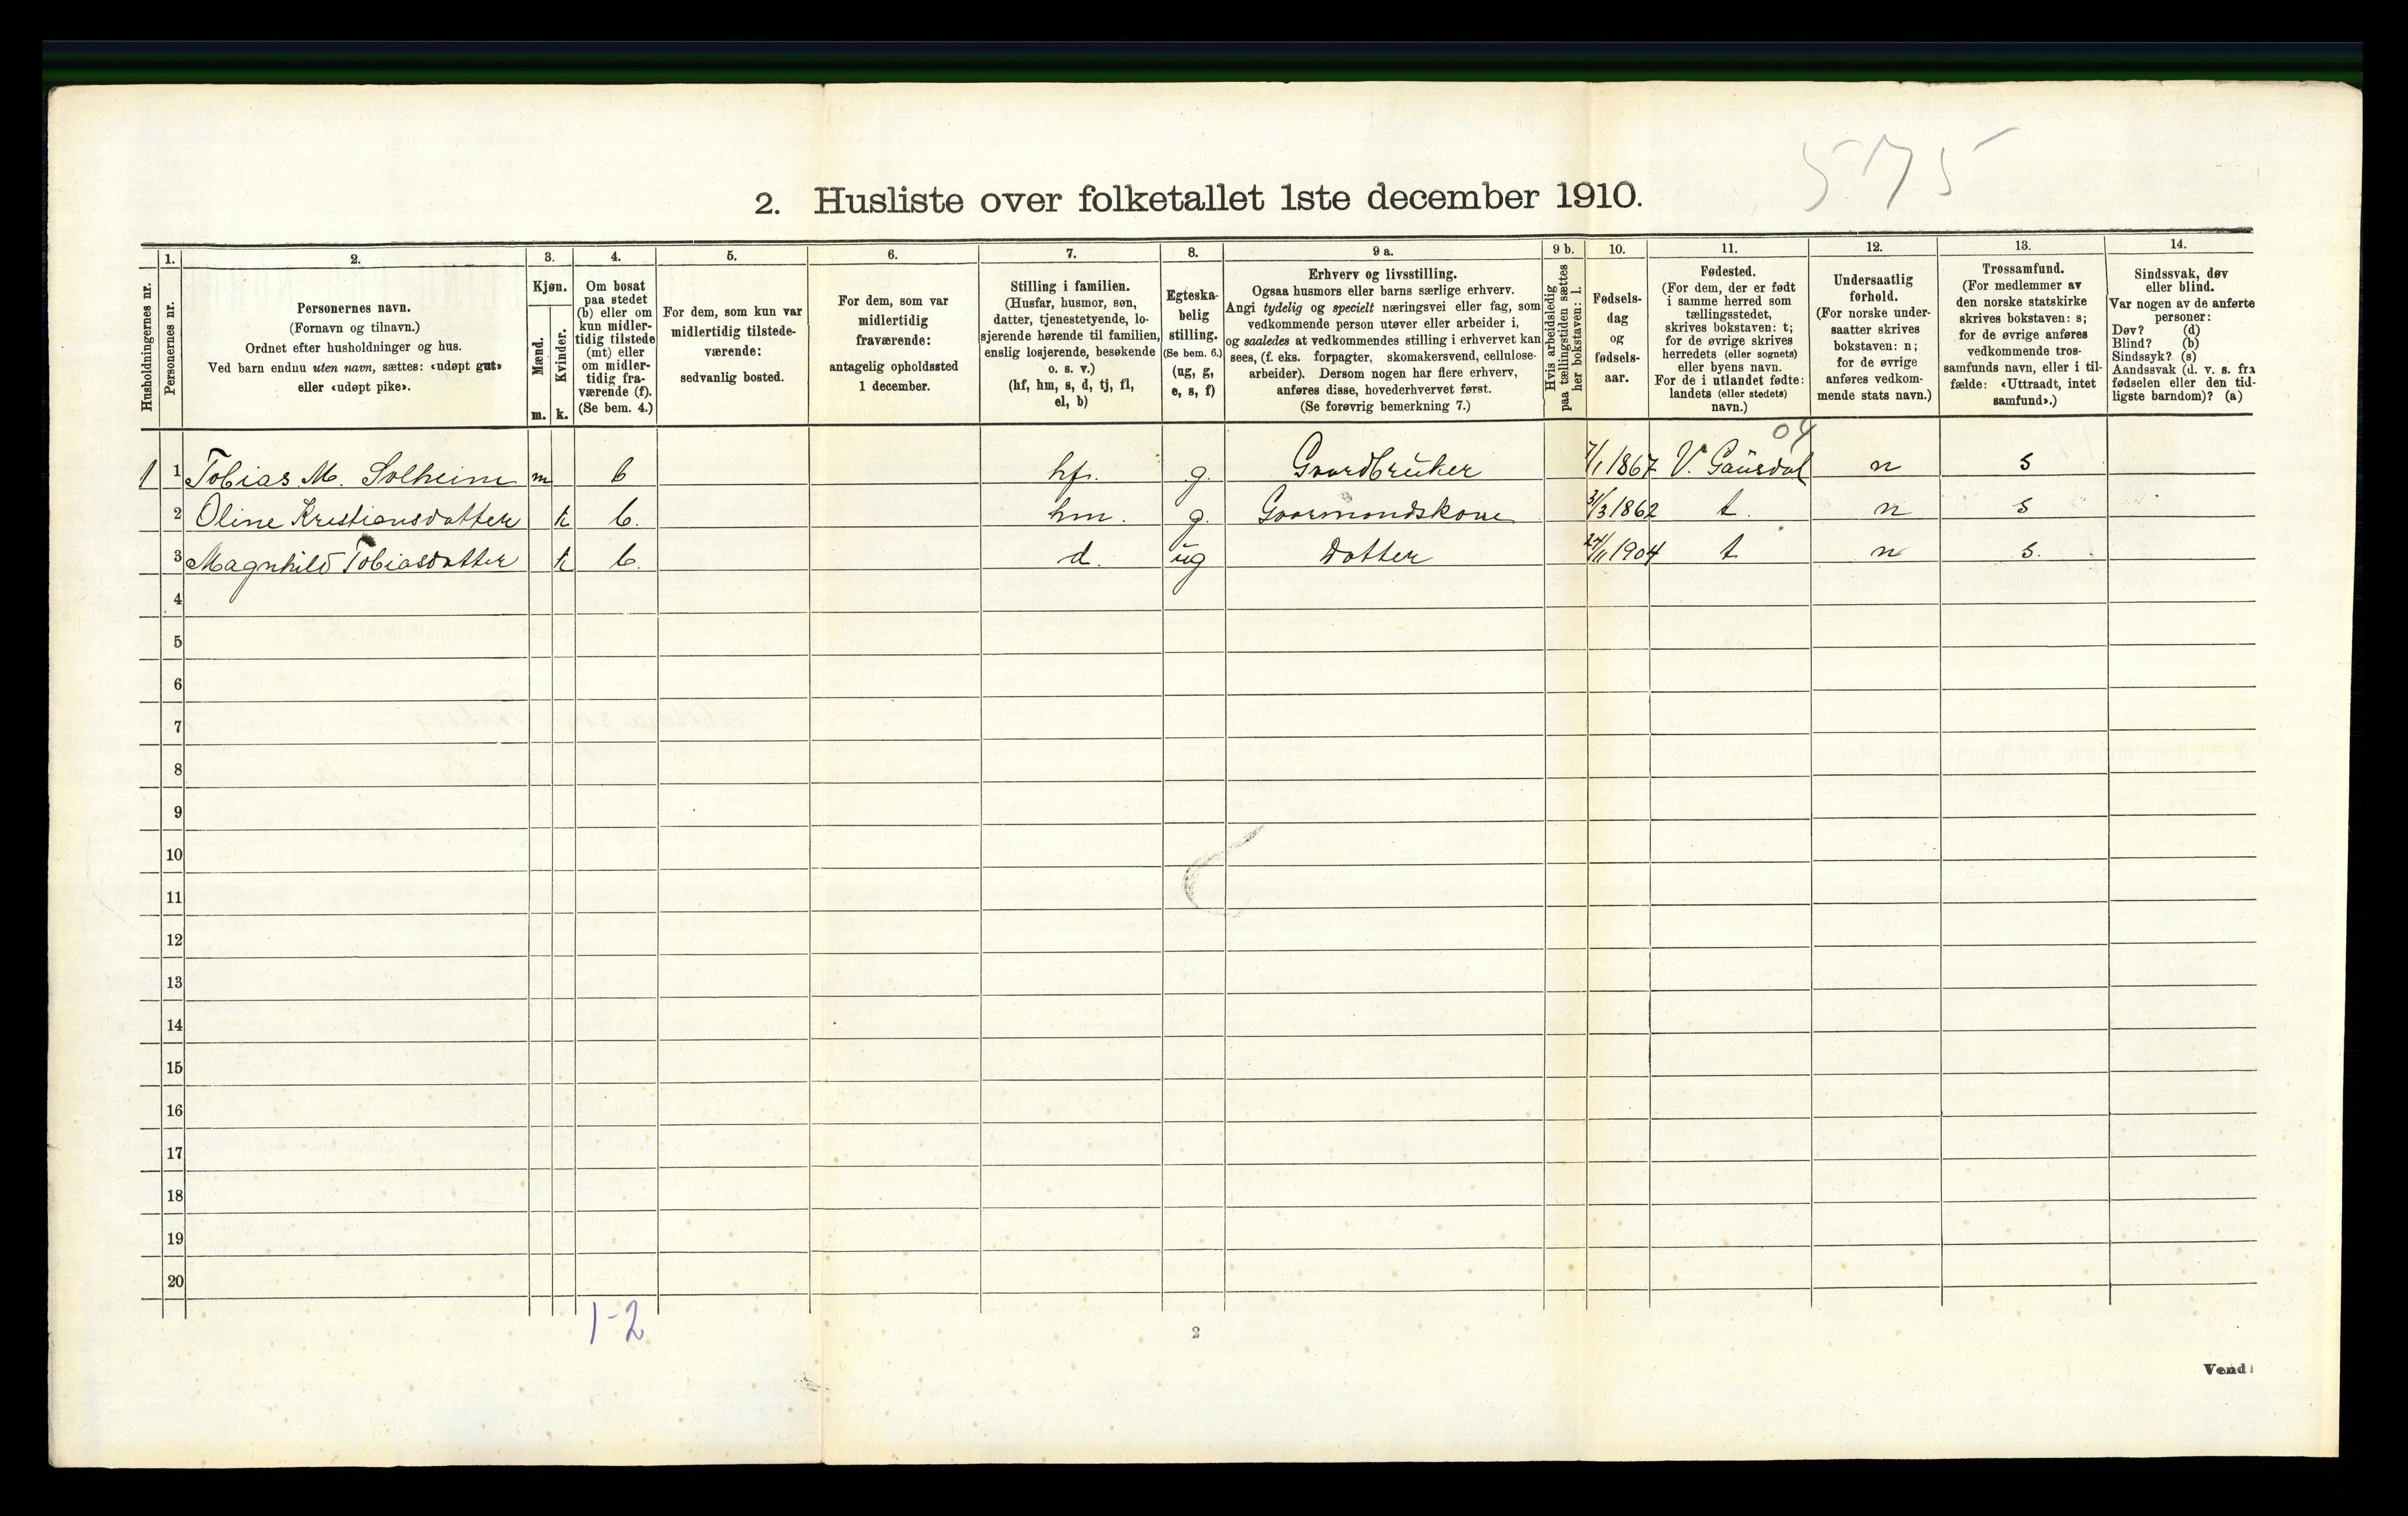 575
2. Husliste over folketallet 1ste december 1910.
Husholdningernes nr.
1.
Personernes nr.
2.
Personernes navn.
(Fornavn og tilnavn.)
Ordnet efter husholdninger og hus.
Ved barn endnu uten navn, sættes: «udøpt gut»
eller «udøpt pike».
3.
Kjøn.
Mænd.
Kvinder.
m. k.
4.
Om bosat
paa stedet
(b) eller om
kun midler-
tidig tilstede
(mt) eller
om midler-
tidig fra-
værende (f).
(Se bem. 4.)
5.
For dem, som kun var
midlertidig tilstede-
værende:
sedvanlig bosted.
6.
For dem, som var
midlertidig
fraværende:
antagelig opholdssted
1 december.
7.
Stilling i familien.
(Husfar, husmor, søn,
datter, tjenestetyende, lo-
sjerende hørende til familien,
enslig losjerende, besøkende
o. s. v.)
(hf, hm, s, d, tj, fl,
el, b)
8.
Egteska-
belig
stilling.
(Se bem. 6.)
(ug, g,
e, s, f)
9 a.
Erhverv og livsstilling.
Ogsaa husmors eller barns særlige erhverv.
Angi tydelig og specielt næringsvei eller fag, som
vedkommende person utøver eller arbeider i,
og saaledes at vedkommendes stilling i erhvervet kan
sees, (f. eks. forpagter, skomakersvend, cellulose-
arbeider). Dersom nogen har flere erhverv,
anføres disse, hovederhvervet først.
(Se forøvrig bemerkning 7.)
9 b.
Hvis arbeidsledig
paa tællingstiden sættes
her bokstaven: l.
10.
Fødsels-
dag
og
fødsels-
aar.
11.
Fødested.
(For dem, der er født
i samme herred som
tællingsstedet,
skrives bokstaven: t;
for de øvrige skrives
herredets (eller sognets)
eller byens navn.
For de i utlandet fødte:
landets (eller stedets)
navn.)
12.
Undersaatlig
forhold.
(For norske under-
saatter skrives
bokstaven: n;
for de øvrige
anføres vedkom-
mende stats navn.)
13.
Trossamfund.
(For medlemmer av
den norske statskirke
skrives bokstaven: s;
for de øvrige anføres
vedkommende tros-
samfunds navn, eller i til-
fælde: «Uttraadt, intet
samfund».)
14.
Sindssvak, døv
eller blind.
Var nogen av de anførte
personer:
Døv? (d)
Blind? (b)
Sindssyk? (s)
Aandssvak (d. v. s. fra
fødselen eller den tid-
ligste barndom)? (a)
04
1 1 Tobias M. Solheim m b hf. g. Gaardbruker 7/1 1867 V. Gausdal n s
2 Oline Kristiansdatter k b. hm. g. Gaarmandskone 31/3 1862 t. n s
3 Magnhild Tobiasdatter k b. d. ug Datter 24/11 1904 t n s.
4
5
6
7
8
9
10
11
12
13
14
15
16
17
18
19
20
1-2
2
Vend!